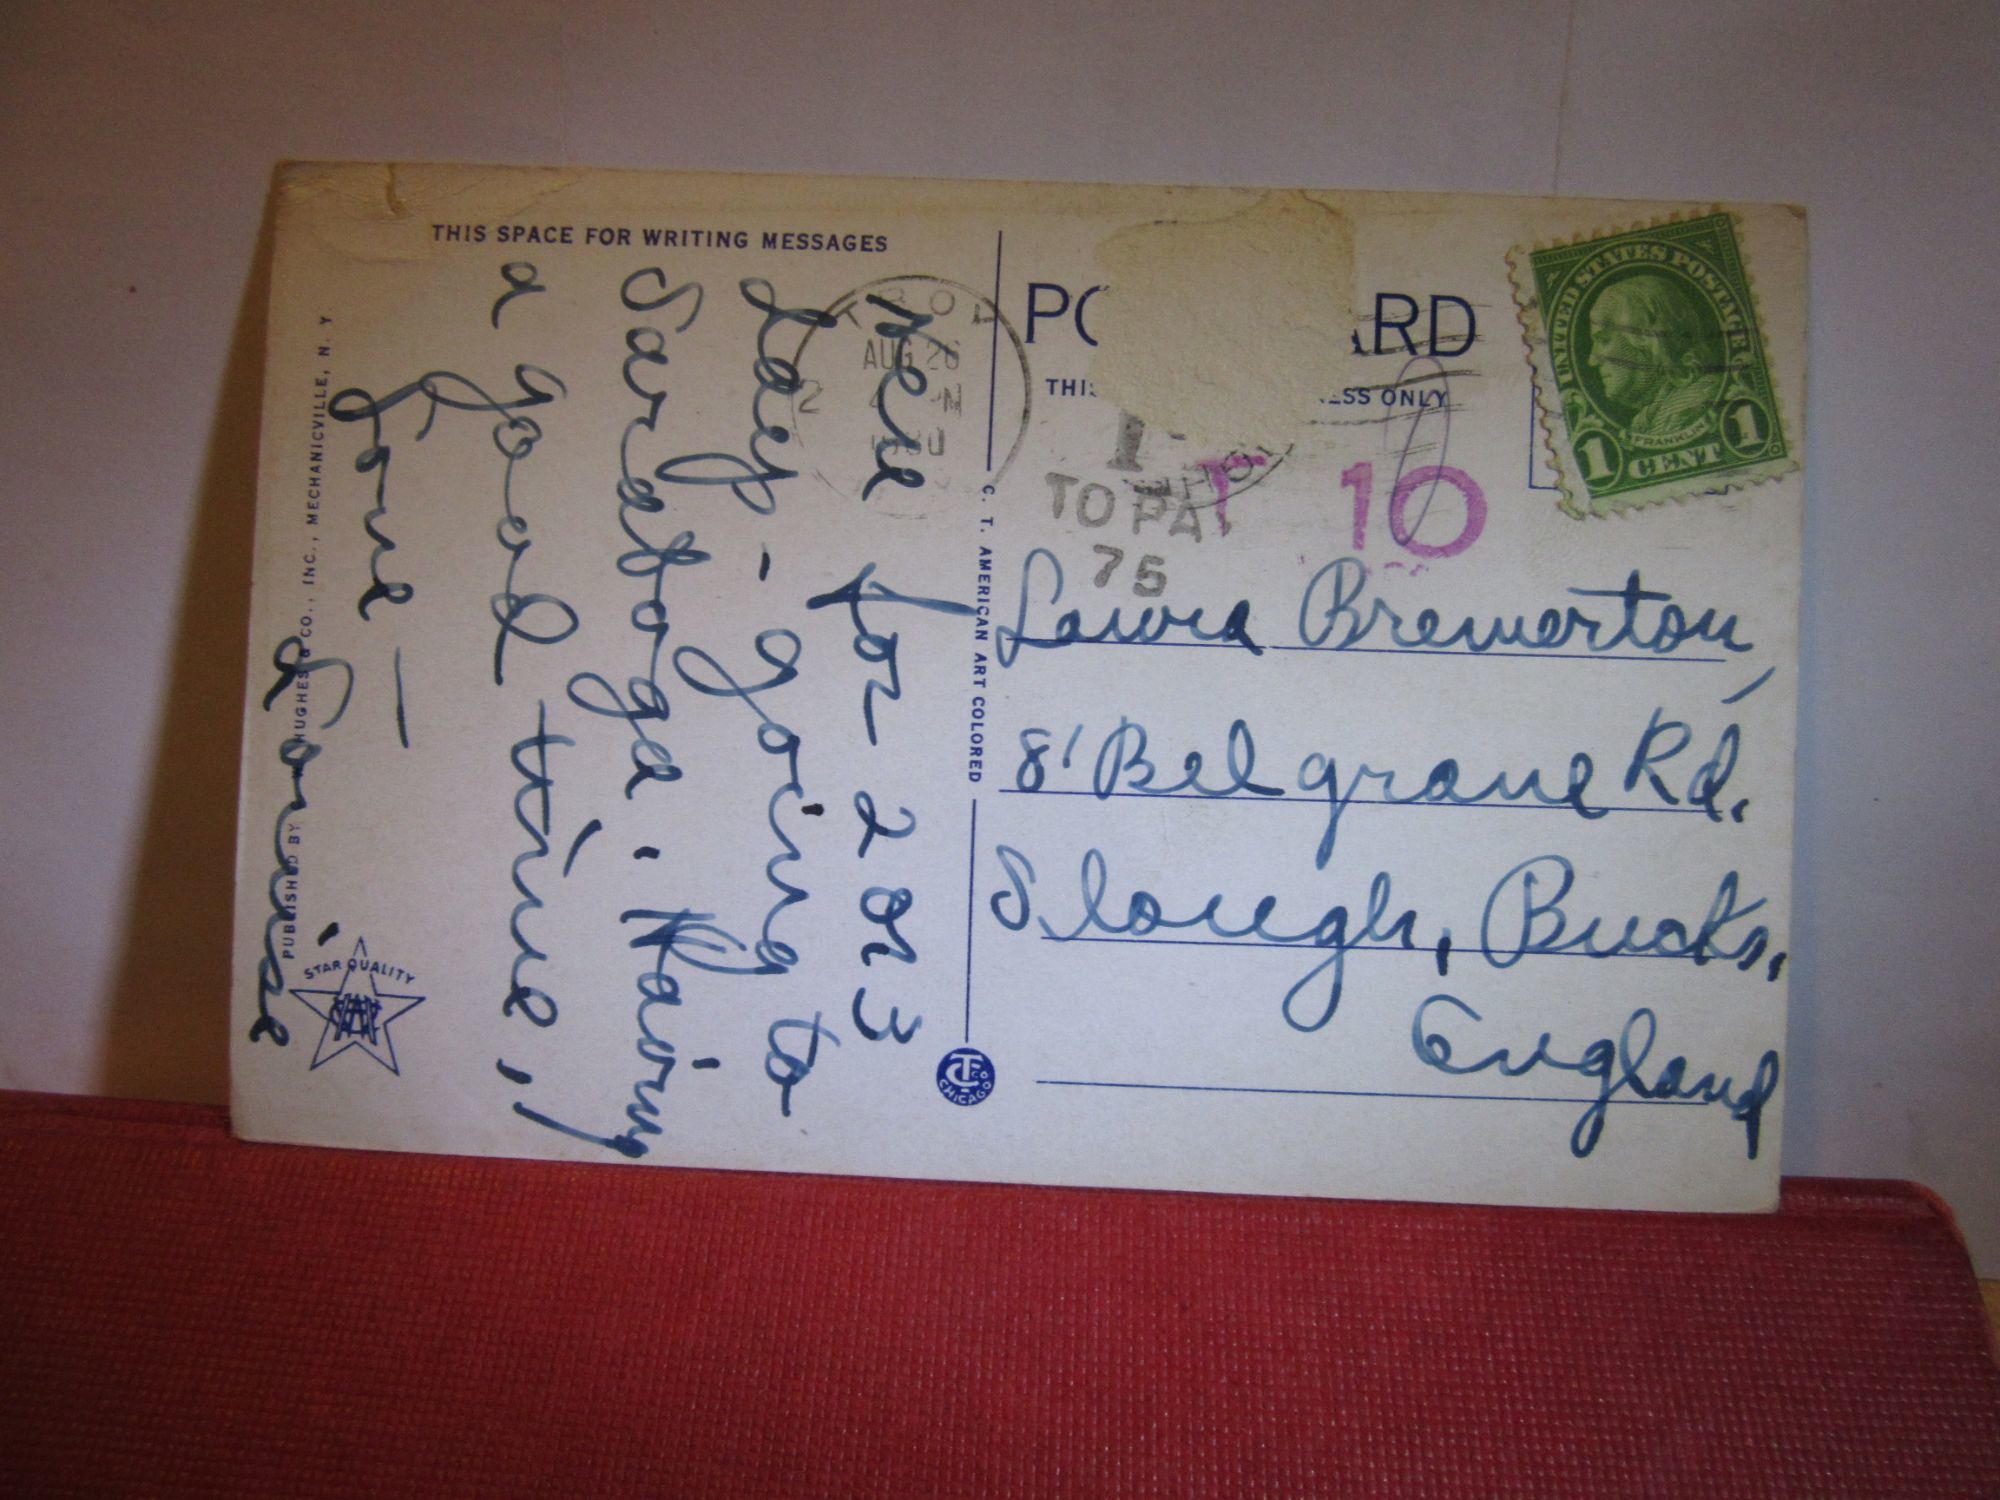 THIS SPACE FOR WRITING MESSAGES
Here for 2 or 3
days - going to
Saratoga. Having
a good time,
Love —
Lonnie
PUBLISHED BY HUGHES & CO., INC., MECHANICVILLE, N. Y
STAR QUALITY
C. T. AMERICAN ART COLORED
CHICAGO
TROY
AUG 26
1930
PO ARD
ESS ONLY
TO PAY
75
T 10
UNITED STATES POSTAGE
FRANKLIN
1 CENT 1
Laura Bremerton,
8 Belgrave Rd.
Slough, Bucks.
England